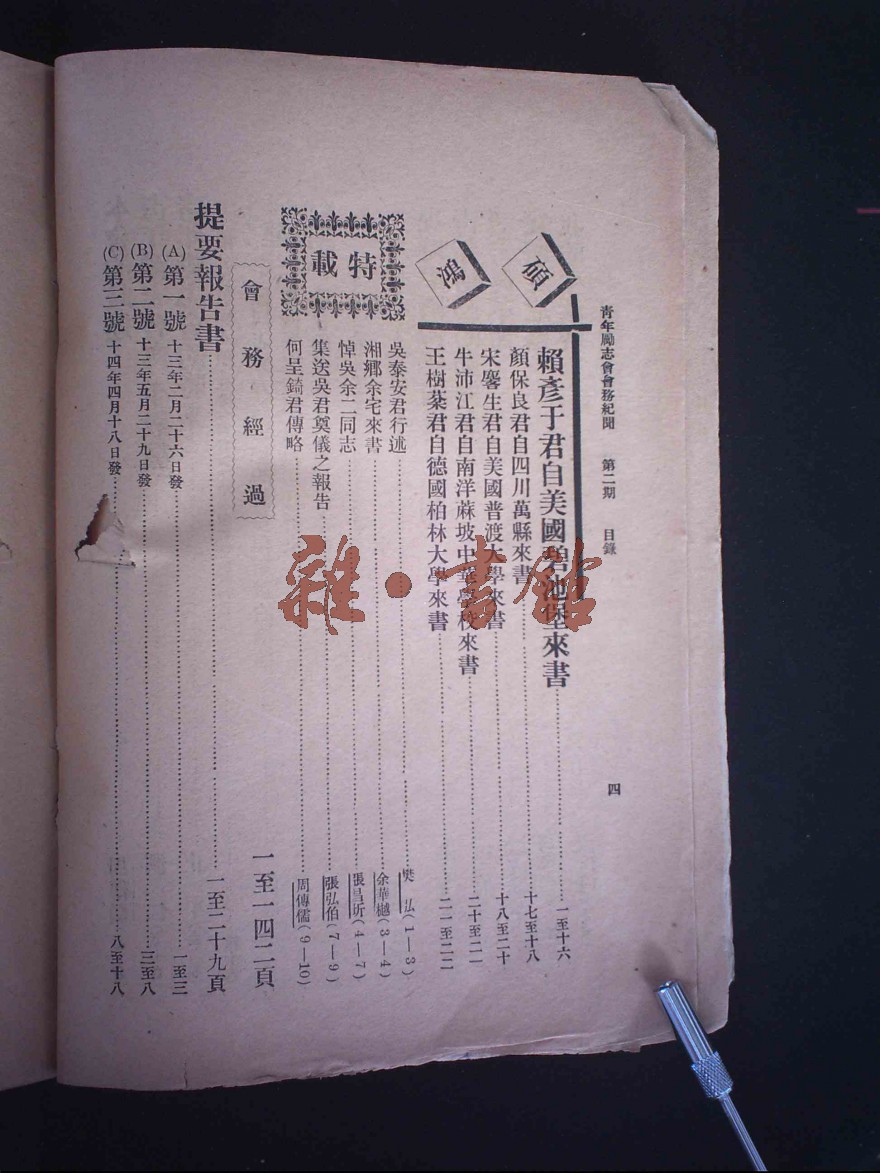 青年勵志會會務紀聞 第二期 目錄 四
碩鴻
賴彥于君自美國碧池堡來書 一至十六
顏保良君自四川萬縣來書 十七至十八
宋麐生君自美國普渡大學來書 十八至二十
牛沛江君自南洋蔴坡中華學校來書 二十至二一
王樹棻君自德國柏林大學來書 二一至二二
特載
吳泰安君行述 樊弘(1—3)
湘鄉余宅來書 余華樾(3—4)
悼吳余二同志 張昌圻(4—7)
集送吳君奠儀之報告 張弘伯(7—9)
何呈錡君傳略 周傳儒(9—10)
會務經過 一至一四二頁
提要報告書 一至二十九頁
(A)第一號 十三年二月二十六日發 一至三
(B)第二號 十三年五月二十九日發 三至八
(C)第三號 十四年四月十八日發 八至十八
雜·書館